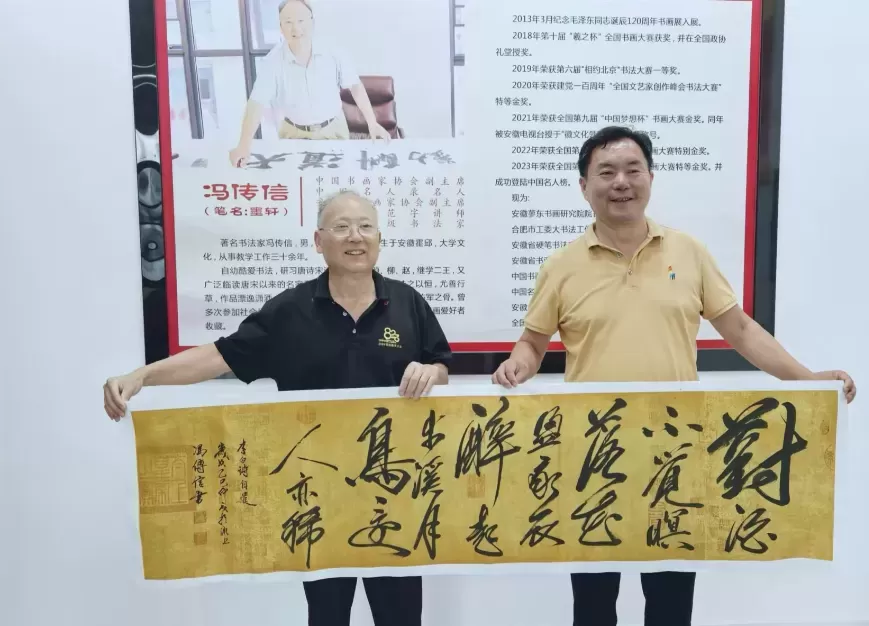 冯传信
（笔名:墨轩）
中国书画家协会副主席
人名录名人
家协会副主席
范字讲师
级书法家
著名书法家冯传信，男，
生于安徽霍邱，大学文
化，从事教学工作三十余年。
自幼酷爱书法，研习唐诗宋
柳、赵，继学二王，又
广泛临读唐宋以来的名家
之以恒，尤善行
草，作品潇逸洒
军之骨。曾
多次参加社会
画爱好者
收藏。
2013年3月纪念毛泽东同志诞辰120周年书画展入展。
2018年第十届“羲之杯”全国书画大赛获奖，并在全国政协
礼堂授奖。
2019年荣获第六届“相约北京”书法大赛一等奖。
2020年荣获建党一百周年“全国文艺家创作峰会书法大赛”
特等金奖。
2021年荣获全国第九届“中国梦想杯”书画大赛金奖。同年
被安徽电视台授于“徽文化 号。
2022年荣获全国 画大赛特别金奖。
2023年荣获全国第 画大赛特等金奖。并
成功登陆中国名人榜。
现为：
安徽萝东书画研究院院
合肥市工委大书法工
安徽省硬笔书
安徽省书
中国书
中国名
安徽
全国
對酒
不覺暝
落花
盈我衣
醉起
步溪月
鳥還
人亦稀
李白詩自遣
馮傳信書